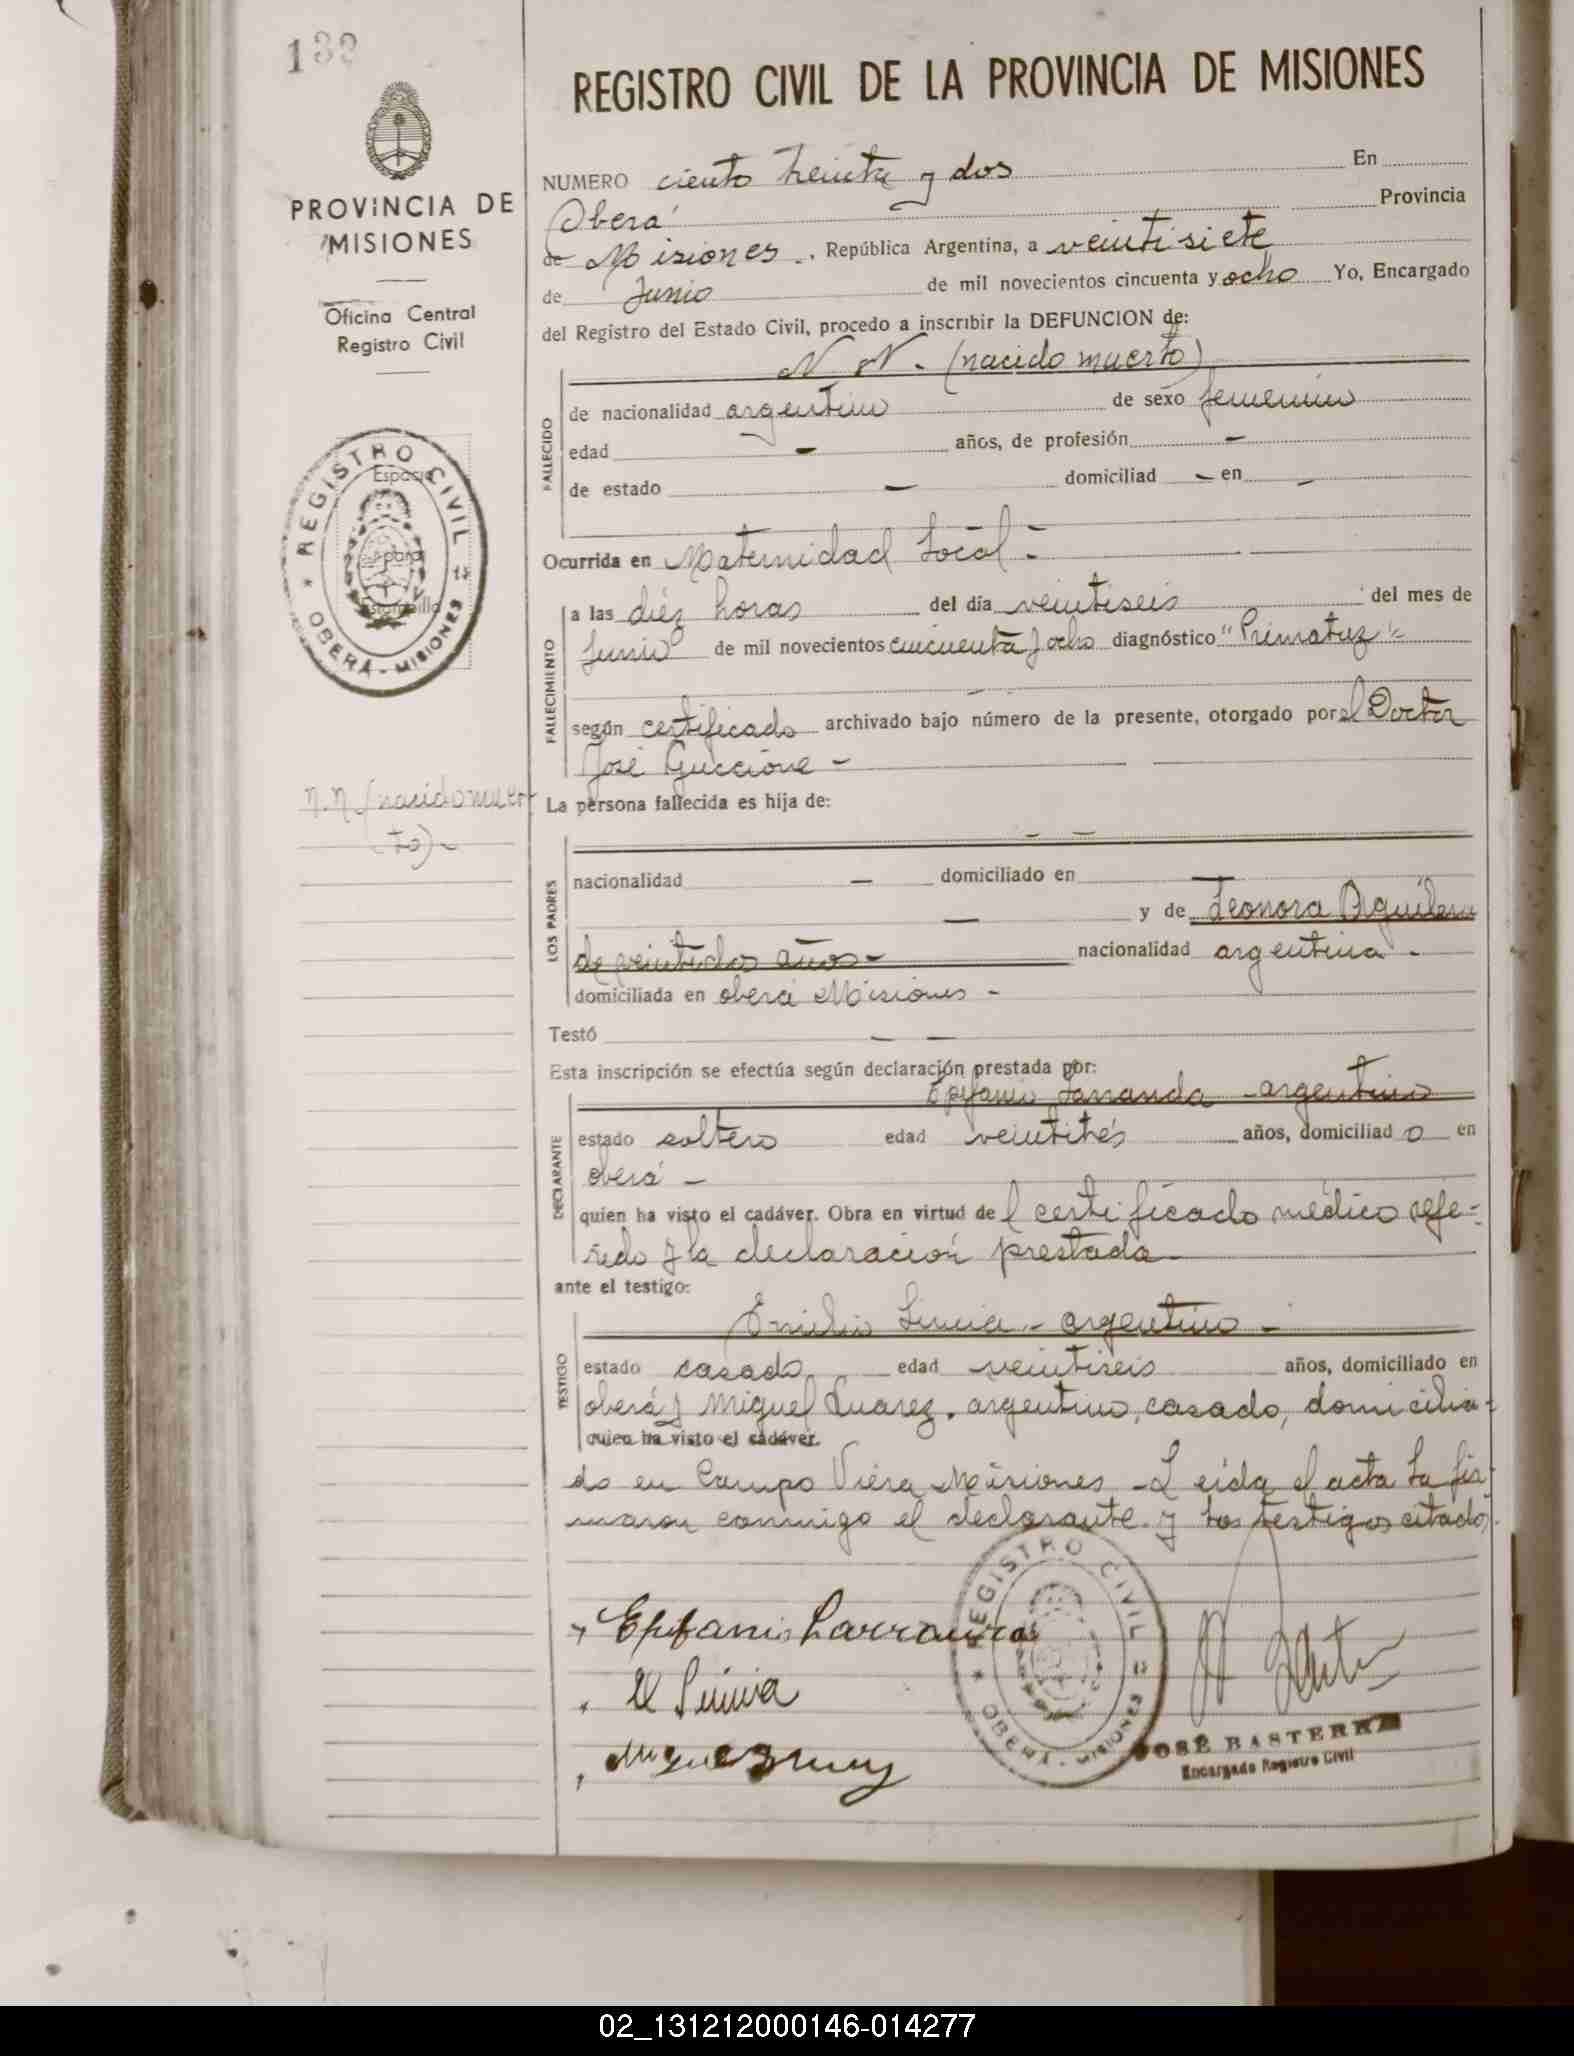 132
PROVINCIA DE
MISIONES
Oficina Central
Registro Civil
REGISTRO CIVIL
Espacio
para
Estampilla
OBERÁ - MISIONES
N.N (nacido muer-
to) -
REGISTRO CIVIL DE LA PROVINCIA DE MISIONES
NUMERO ciento treinta y dos En
Oberá Provincia
de Misiones . , República Argentina, a veintisiete
de Junio de mil novecientos cincuenta y ocho Yo, Encargado
del Registro del Estado Civil, procedo a inscribir la DEFUNCION de:
N. N. (nacido muerto)
FALLECIDO
de nacionalidad argentino de sexo femenino
edad - años, de profesión -
de estado - domiciliad - en -
Ocurrida en Maternidad Local -
FALLECIMIENTO
a las diéz horas del día veintiseis del mes de
Junio de mil novecientos cincuenta y ocho diagnóstico "Primatuz"-
según certificado archivado bajo número de la presente, otorgado por el Doctor
José Guccione -
La persona fallecida es hija de:
- -
LOS PADRES
nacionalidad - domiciliado en -
- y de Leonora Aguilera
de veintidos años - nacionalidad argentina -
domiciliada en oberá Misiones -
Testó - -
Esta inscripción se efectúa según declaración prestada por:
Epifanio - argentino
DECLARANTE
estado soltero edad veintitrés años, domiciliad o en
oberá -
quien ha visto el cadáver. Obra en virtud de l certificado médico refe-
rido y la declaración prestada -
ante el testigo:
Emilio - argentino -
TESTIGO
estado casado edad veintiseis años, domiciliado en
oberá y Miguel Suarez. argentino, casado, domicilia-
quien ha visto el cadáver.
do en Campo Viera Misiones - Leida el acta la fir-
maron conmigo el declarante y los testigos citados.
REGISTRO CIVIL
OBERÁ - MISIONES
JOSÉ BASTERRA
Encargado Registro Civil
02_131212000146-014277